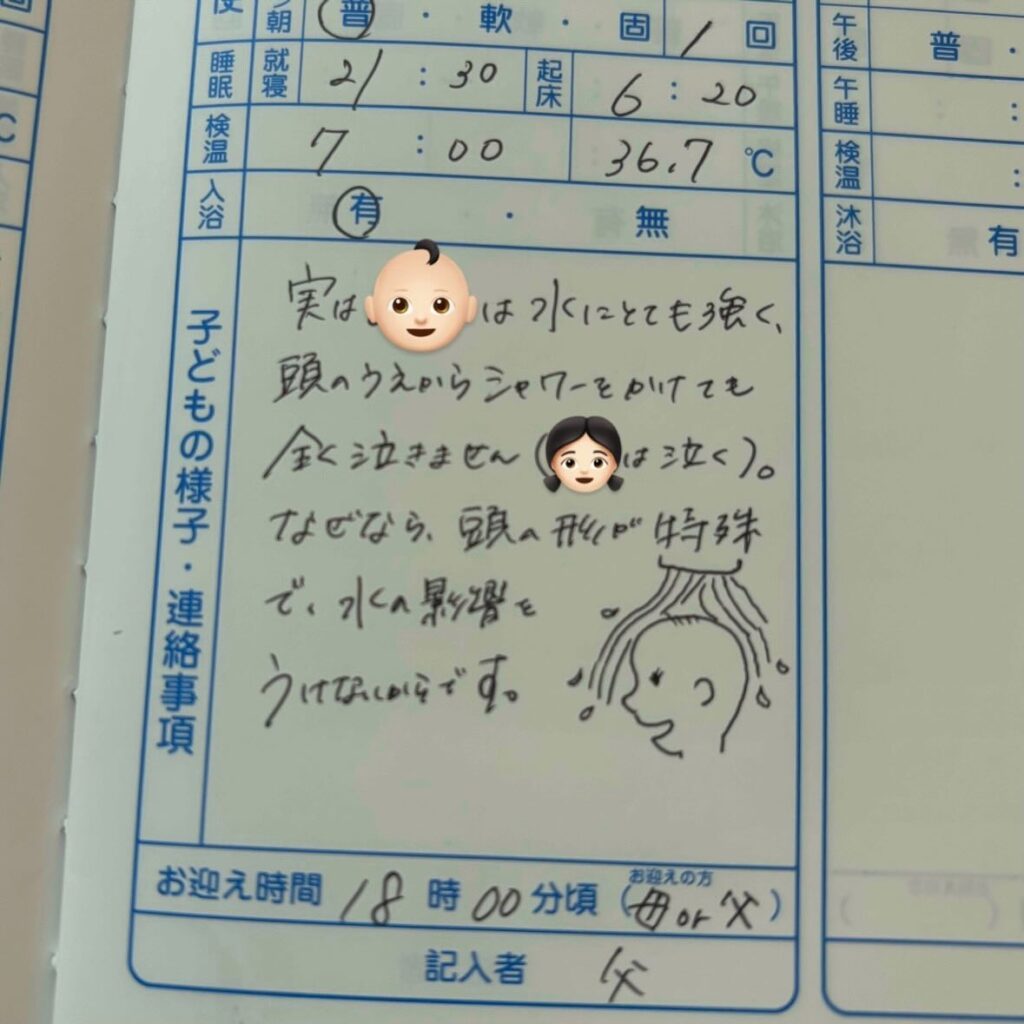 朝 普 ・ 軟 ・ 固 1 回
睡眠 就寝 21 : 30 起床 6 : 20
検温 7 : 00 36.7 ℃
入浴 有 ・ 無
子どもの様子・連絡事項
実は は水にとても強く、
頭のうえからシャワーをかけても
全く泣きません( は泣く)。
なぜなら、頭の形が特殊
で、水の影響を
うけないからです。
お迎え時間 18 時 00 分頃 (お迎えの方 母 or 父)
記入者 父
午後 普 ・
午睡 :
検温 :
沐浴 有
℃